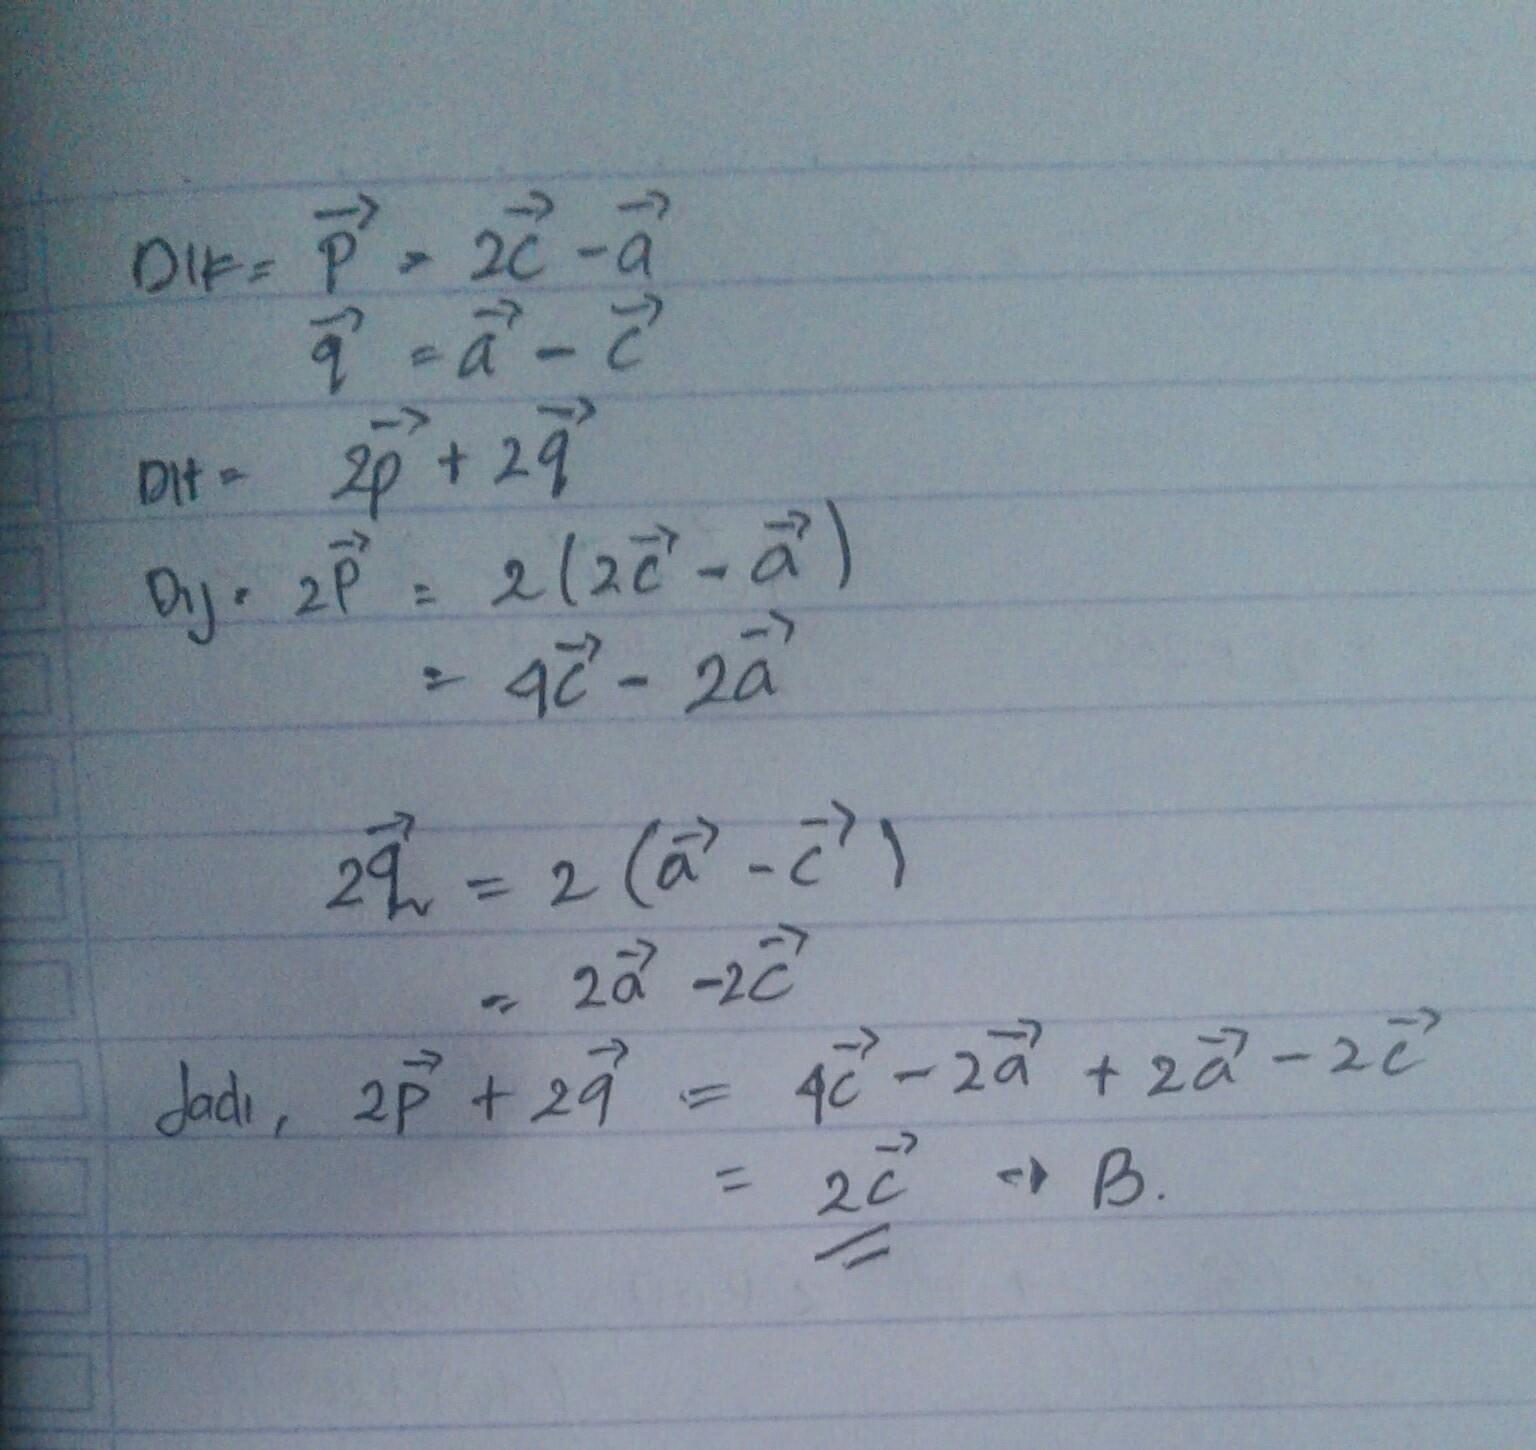 Dik = p⃗ = 2c⃗ - a⃗
q⃗ = a⃗ - c⃗
Dit = 2p⃗ + 2q⃗
Dij = 2p⃗ = 2(2c⃗ - a⃗)
= 4c⃗ - 2a⃗
2q⃗ = 2(a⃗ - c⃗)
= 2a⃗ - 2c⃗
Jadi, 2p⃗ + 2q⃗ = 4c⃗ - 2a⃗ + 2a⃗ - 2c⃗
= 2c⃗ → B.